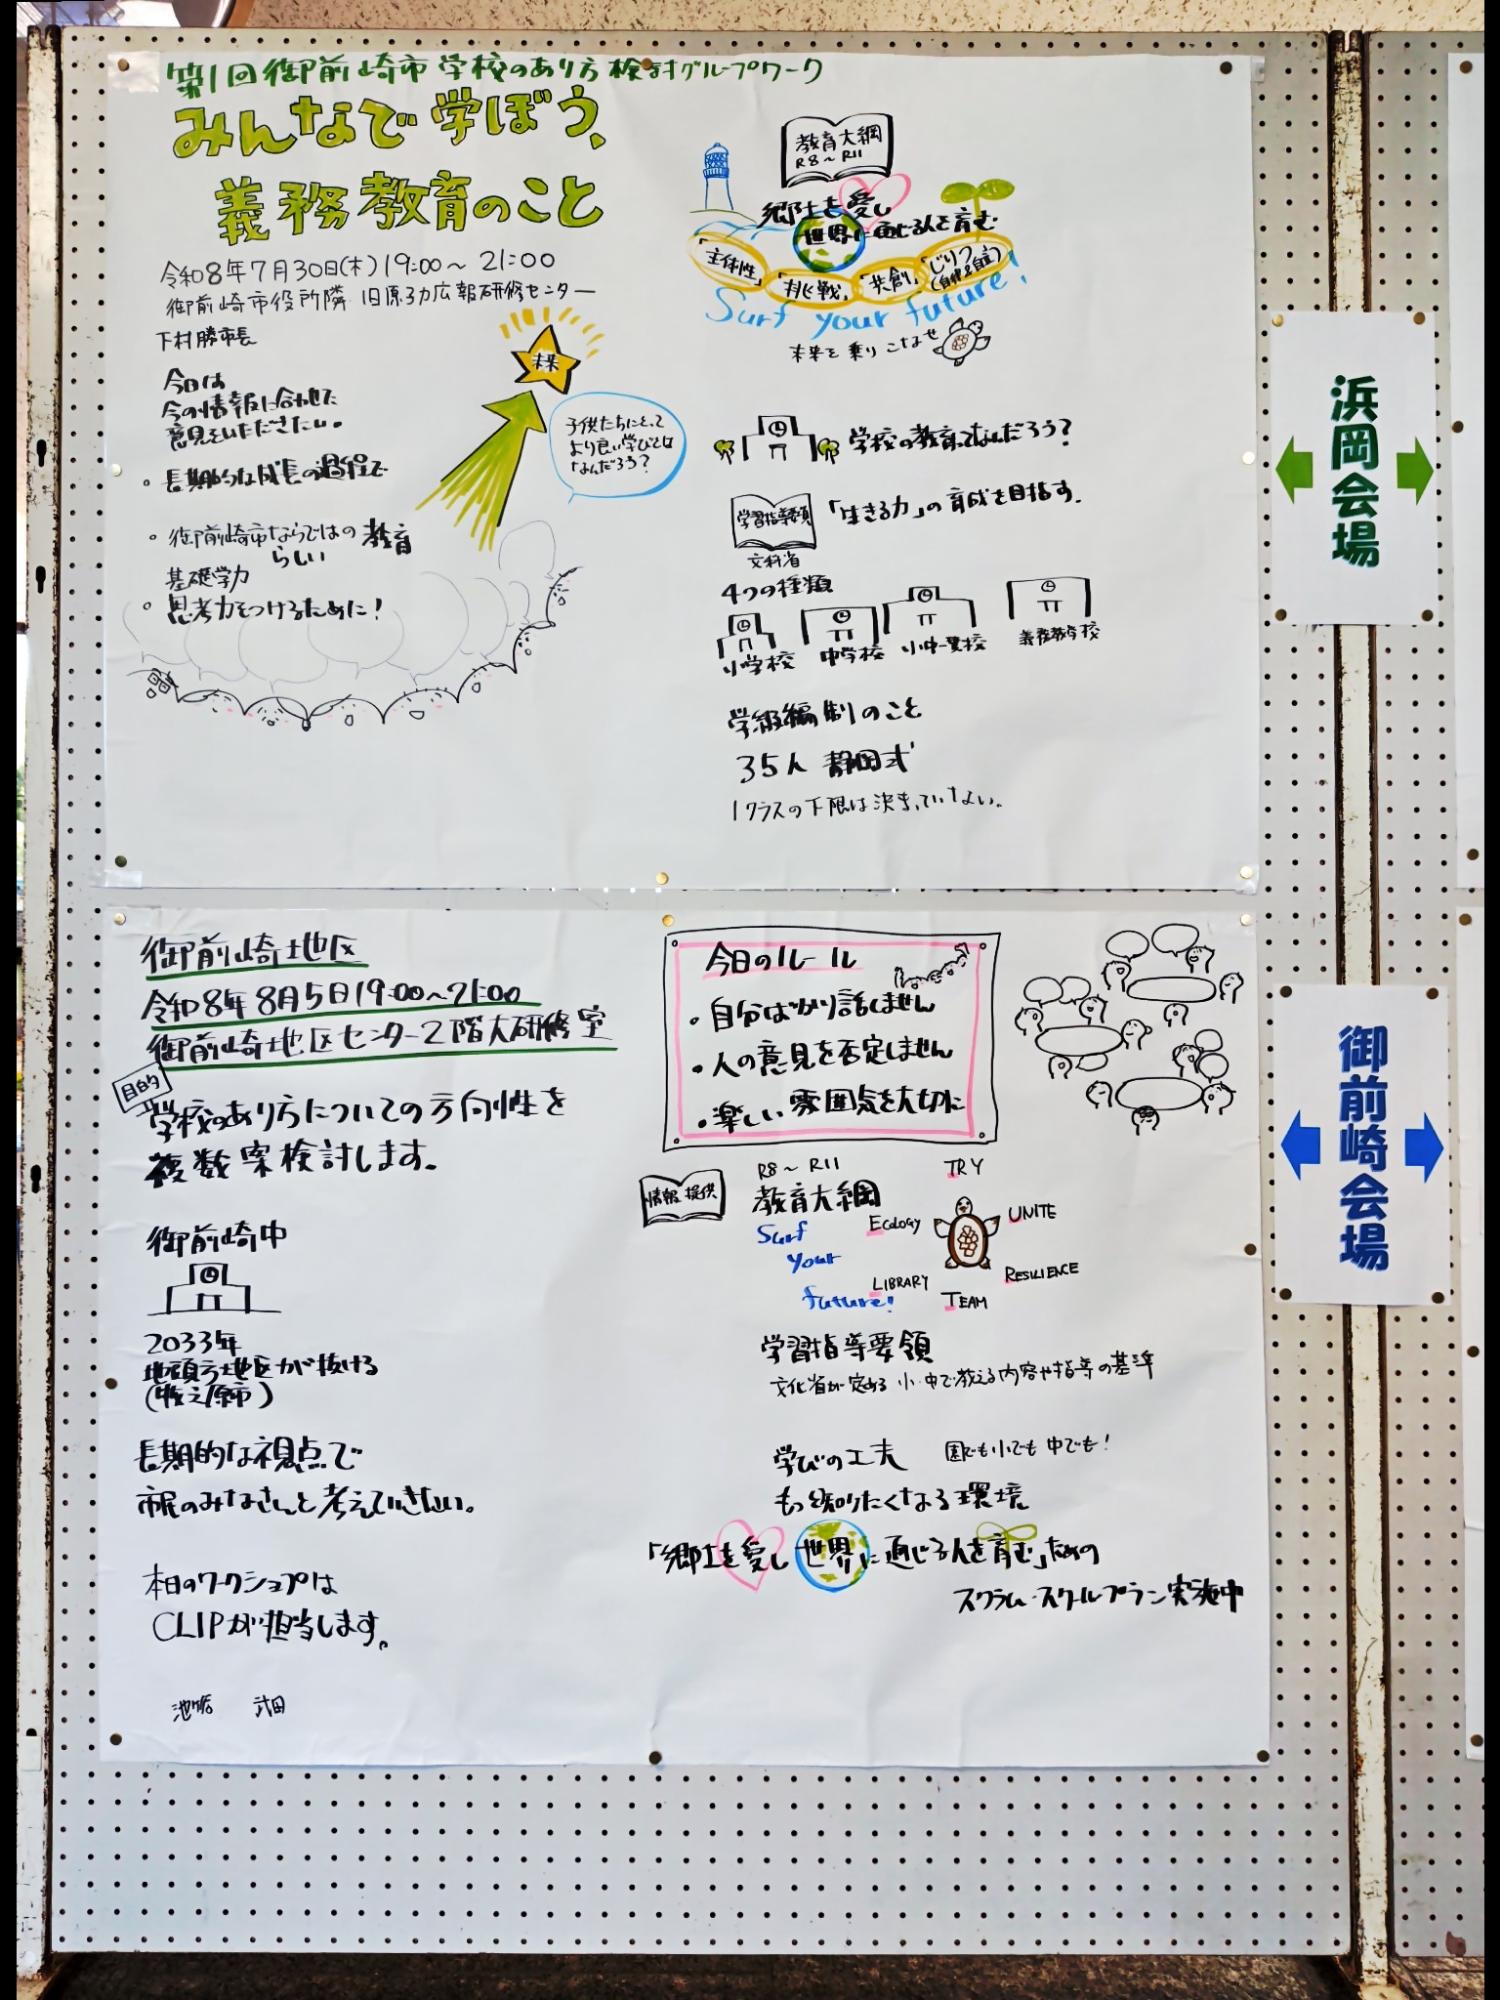 第1回御前崎市学校のあり方検討グループワーク
みんなで学ぼう、
義務教育のこと
令和8年7月30日(木)19:00〜21:00
御前崎市役所隣 旧原子力広報研修センター
下村勝市長
今日は
今の情報に合わせた
意見をいただきたい。
・長期的な成長の過程で
・御前崎市ならではの教育
らしい
基礎学力
・思考力をつけるために!
未来
子供たちにとって
より良い学びとは
なんだろう?
教育大綱
R8〜R11
郷土を愛し
世界に通じる人を育む
「主体性」
「挑戦」
「共創」
「じりつ」
(自律&自立)
Surf your future!
未来を乗りこなせ
学校の教育ってなんだろう?
学習指導要領
文科省
「生きる力」の育成を目指す.
4つの種類
小学校 中学校 小中一貫校 義務教育学校
学級編制のこと
35人 静岡式
1クラスの下限は決まっていない。
浜岡会場
御前崎地区
令和8年8月5日19:00〜21:00
御前崎地区センター2階大研修室
目的
学校のあり方についての方向性を
複数案検討します。
御前崎中
2033年
地頭方地区が抜ける
(牧之原市)
長期的な視点で
市民のみなさんと考えていきたい。
本日のワークショップは
CLIPが担当します。
今日のルール
・自分ばかり話しません
・人の意見を否定しません
・楽しい雰囲気を大切に
情報提供
R8〜R11
教育大綱
Surf
your
future!
TRY
Ecology
UNITE
LIBRARY
RESILIENCE
TEAM
学習指導要領
文化省が定める 小・中で教える内容や指導の基準
学びの工夫 園でも小でも中でも!
もっと知りたくなる環境
「郷土を愛し世界に通じる人を育む」ための
スクラム・スクールプラン実施中
御前崎会場